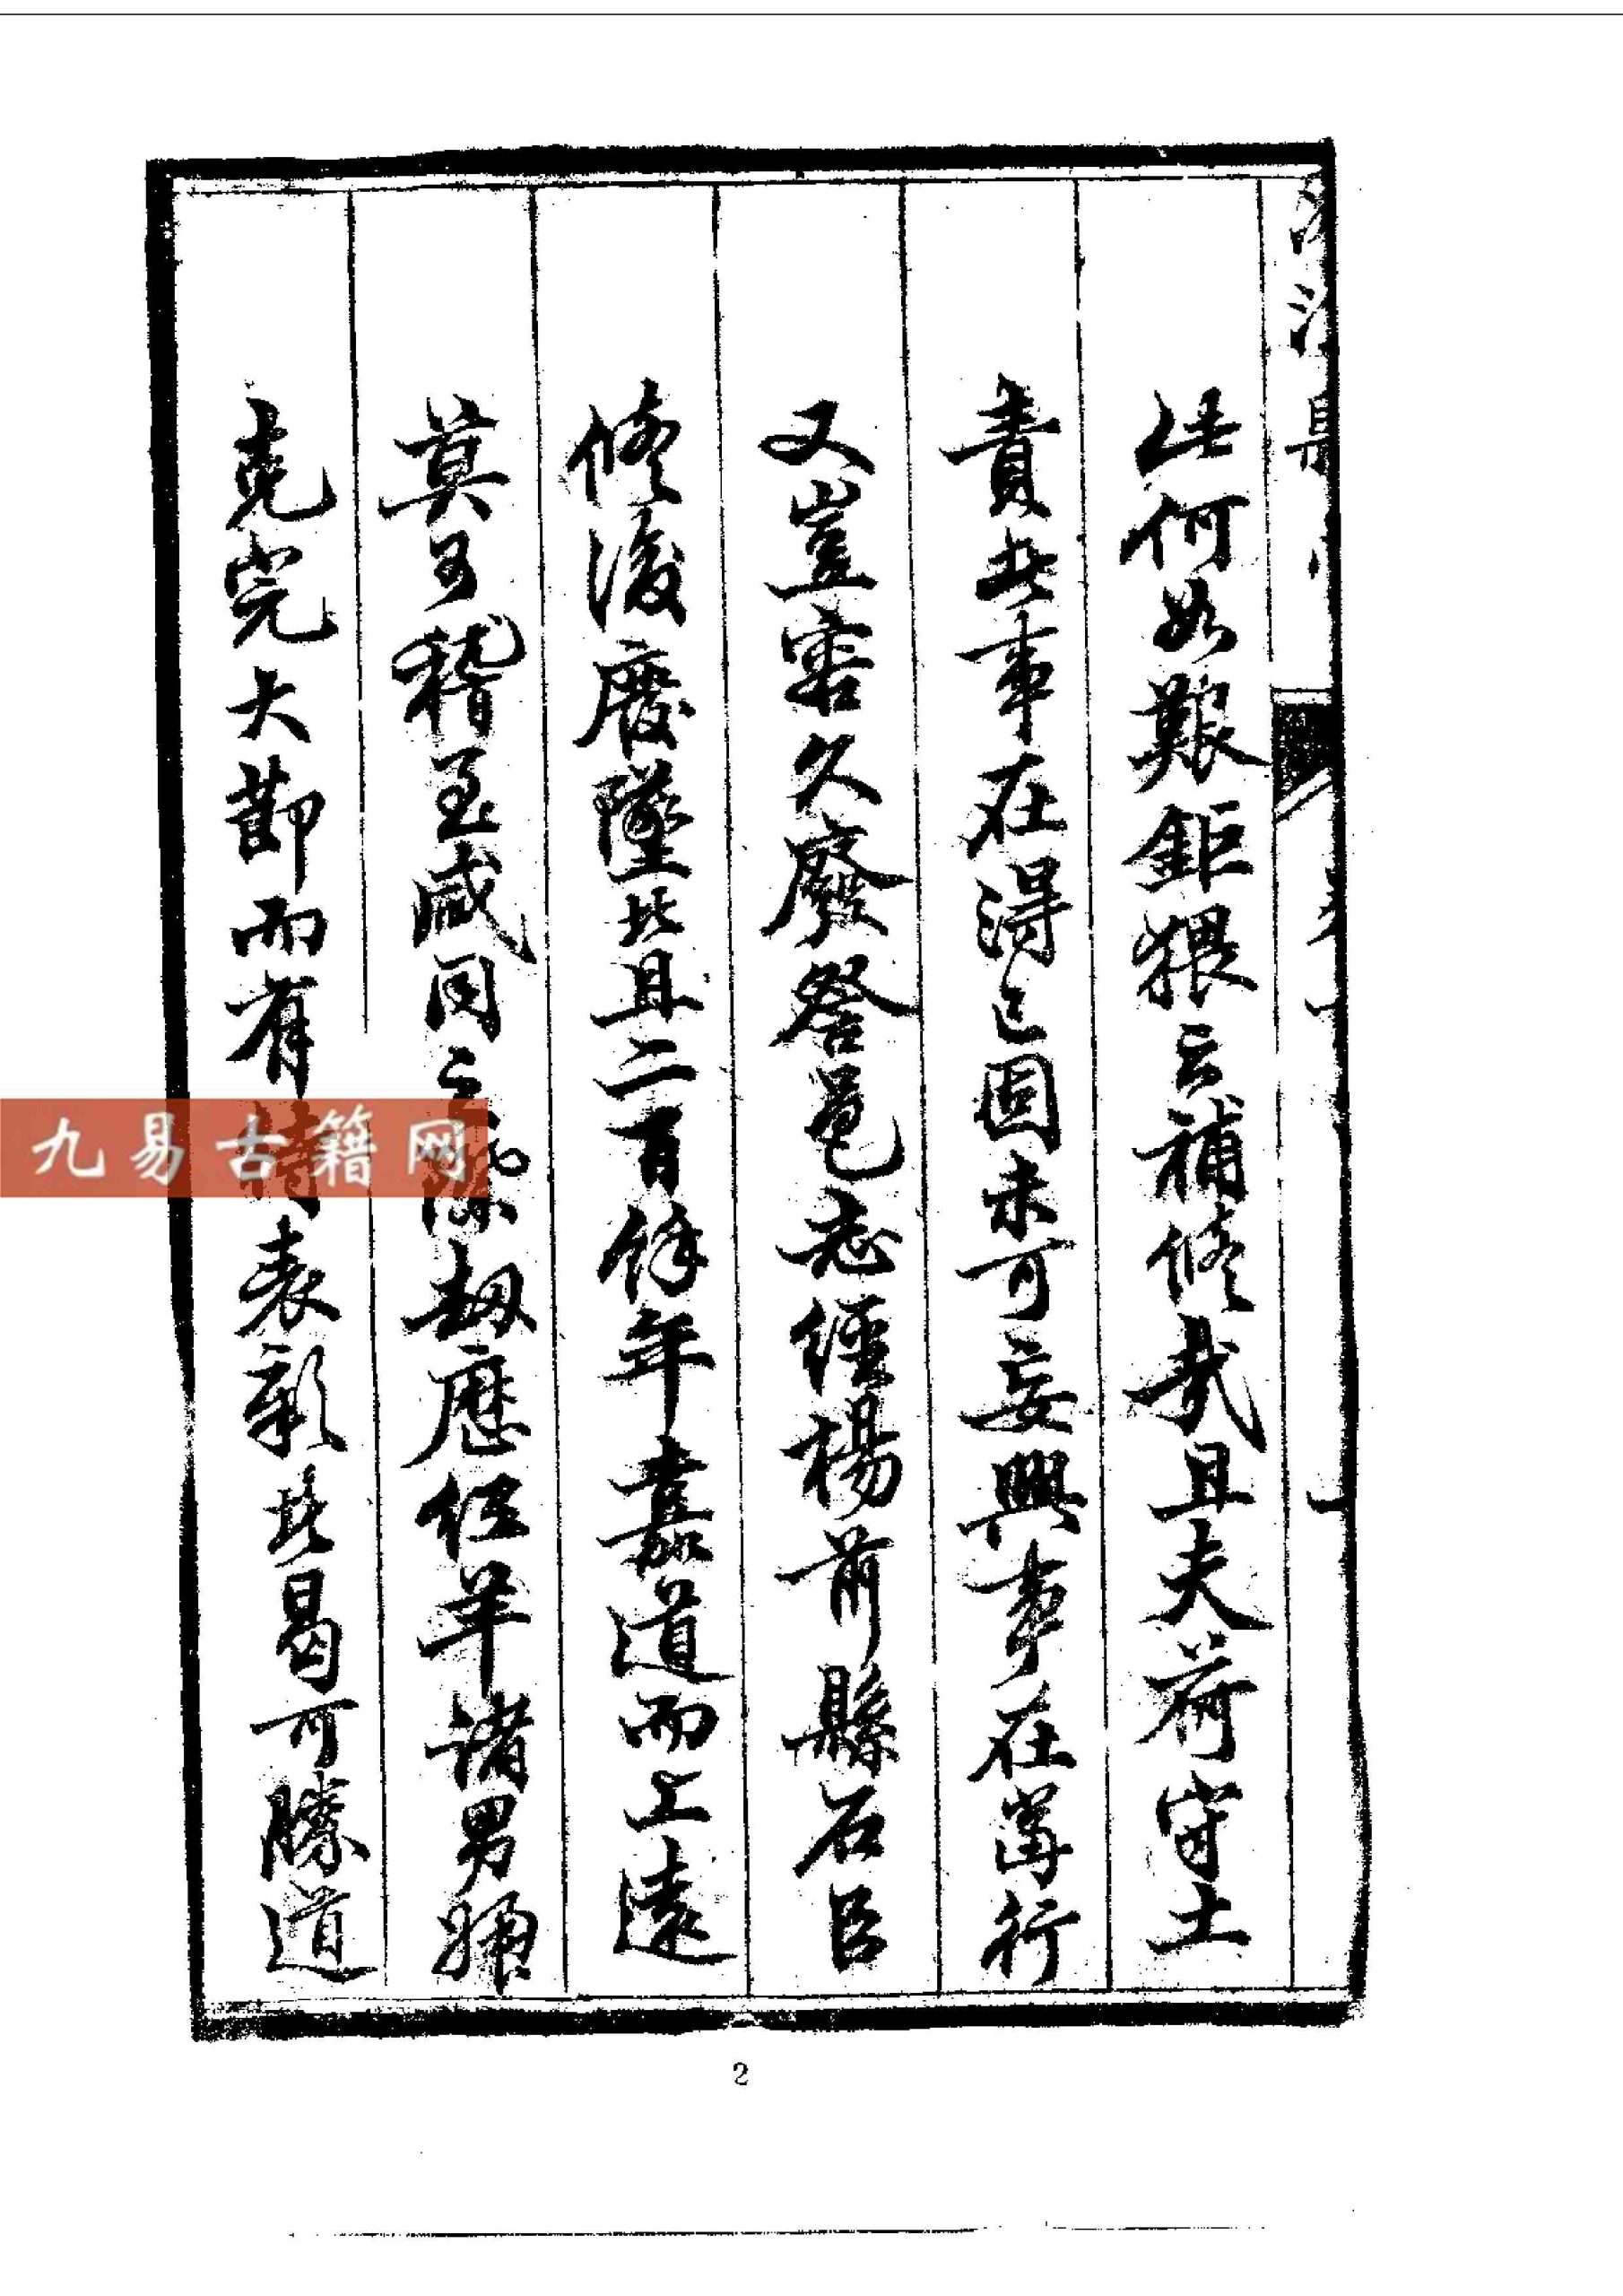 此何如艱鉅猥云補修哉且夫荷守土
責者事在得已固未可妄興事在當行
又豈容久廢登邑志經楊前縣石臣
修後廢墜者且二百餘年嘉道而上遠
莫可稽至咸同之際劫歷紅羊諸男婦
克完大節而有待表彰者曷可勝道
九易古籍网
2